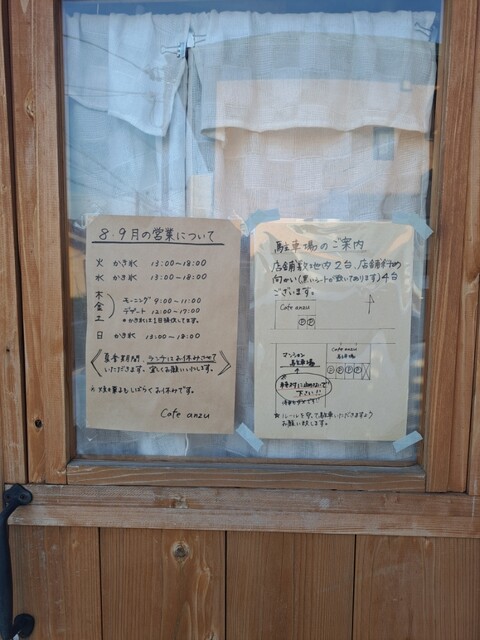 8.9月の営業について
火 かき氷 13:00~18:00
水 かき氷 13:00~18:00
木
金
土
モーニング 9:00~11:00
デザート 12:00~17:00
*かき氷は1日提供してます。
日 かき氷
夏季期間、ランチはお休みさせて
いただきます。宜しくお願いいたします。
※焼き菓子もしばらくお休みです。
Cafe anzu
駐車場のご案内
店舗敷地内2台、店舗斜め
向かい(黒いシートが敷いてあります)4台
ございます。
Cafe anzu
P P
マンション
駐車場
Cafe anzu
駐車場
P P P P
絶対に止めないで
下さい!!
※ルールを守って駐車いただきますよう
お願い致します。